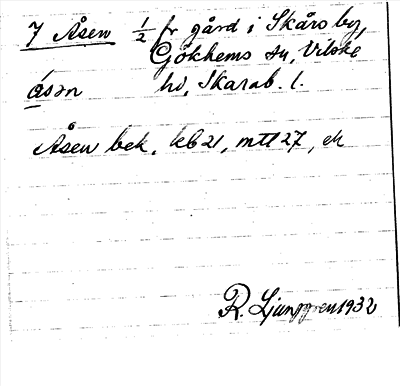 7 Åsen ½ fr gård i Skårs by,
Gökhems sn, Vilske
åsən hd, Skarab. l.
Åsen bek. kb 21, mtl 27, ek
R. Ljunggren 1932